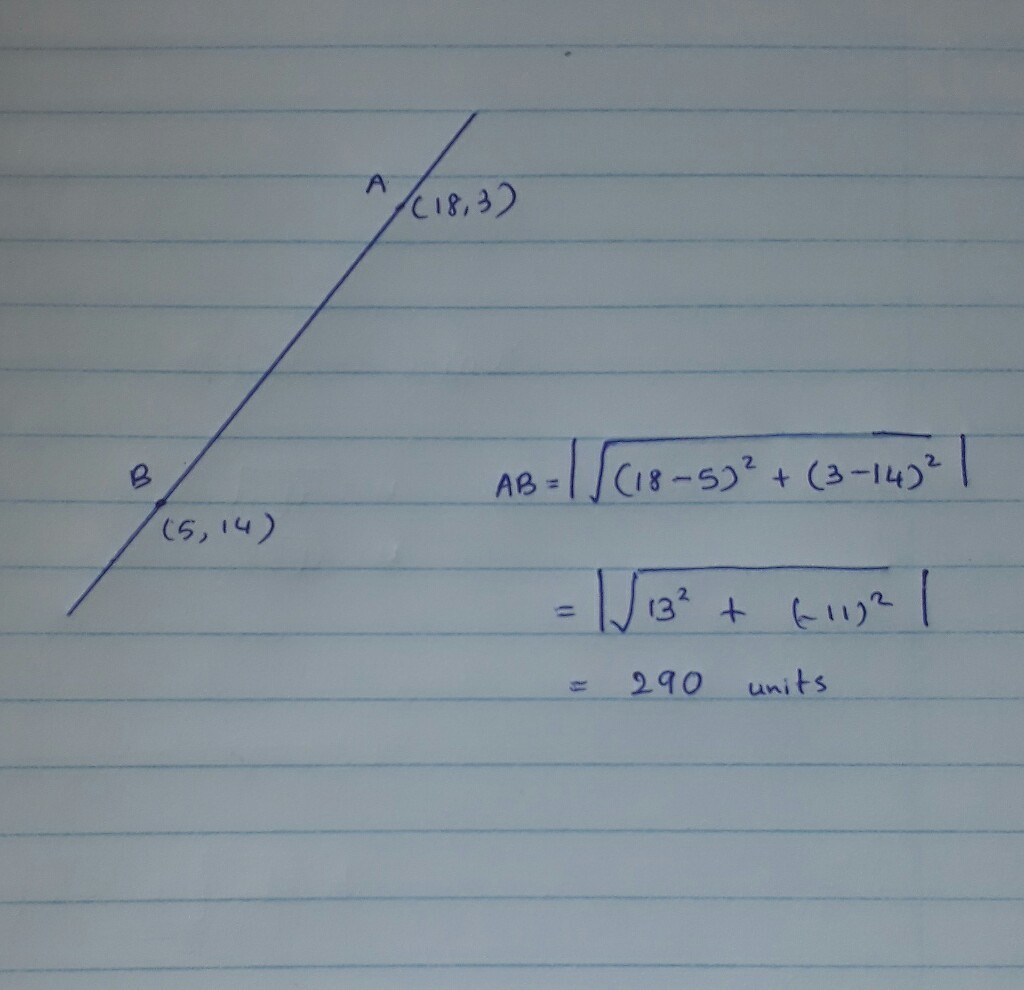 A
(18,3)
B
(5, 14)
AB = |√((18-5)² + (3-14)²)|
= |√(13² + (-11)²)|
= 290 units